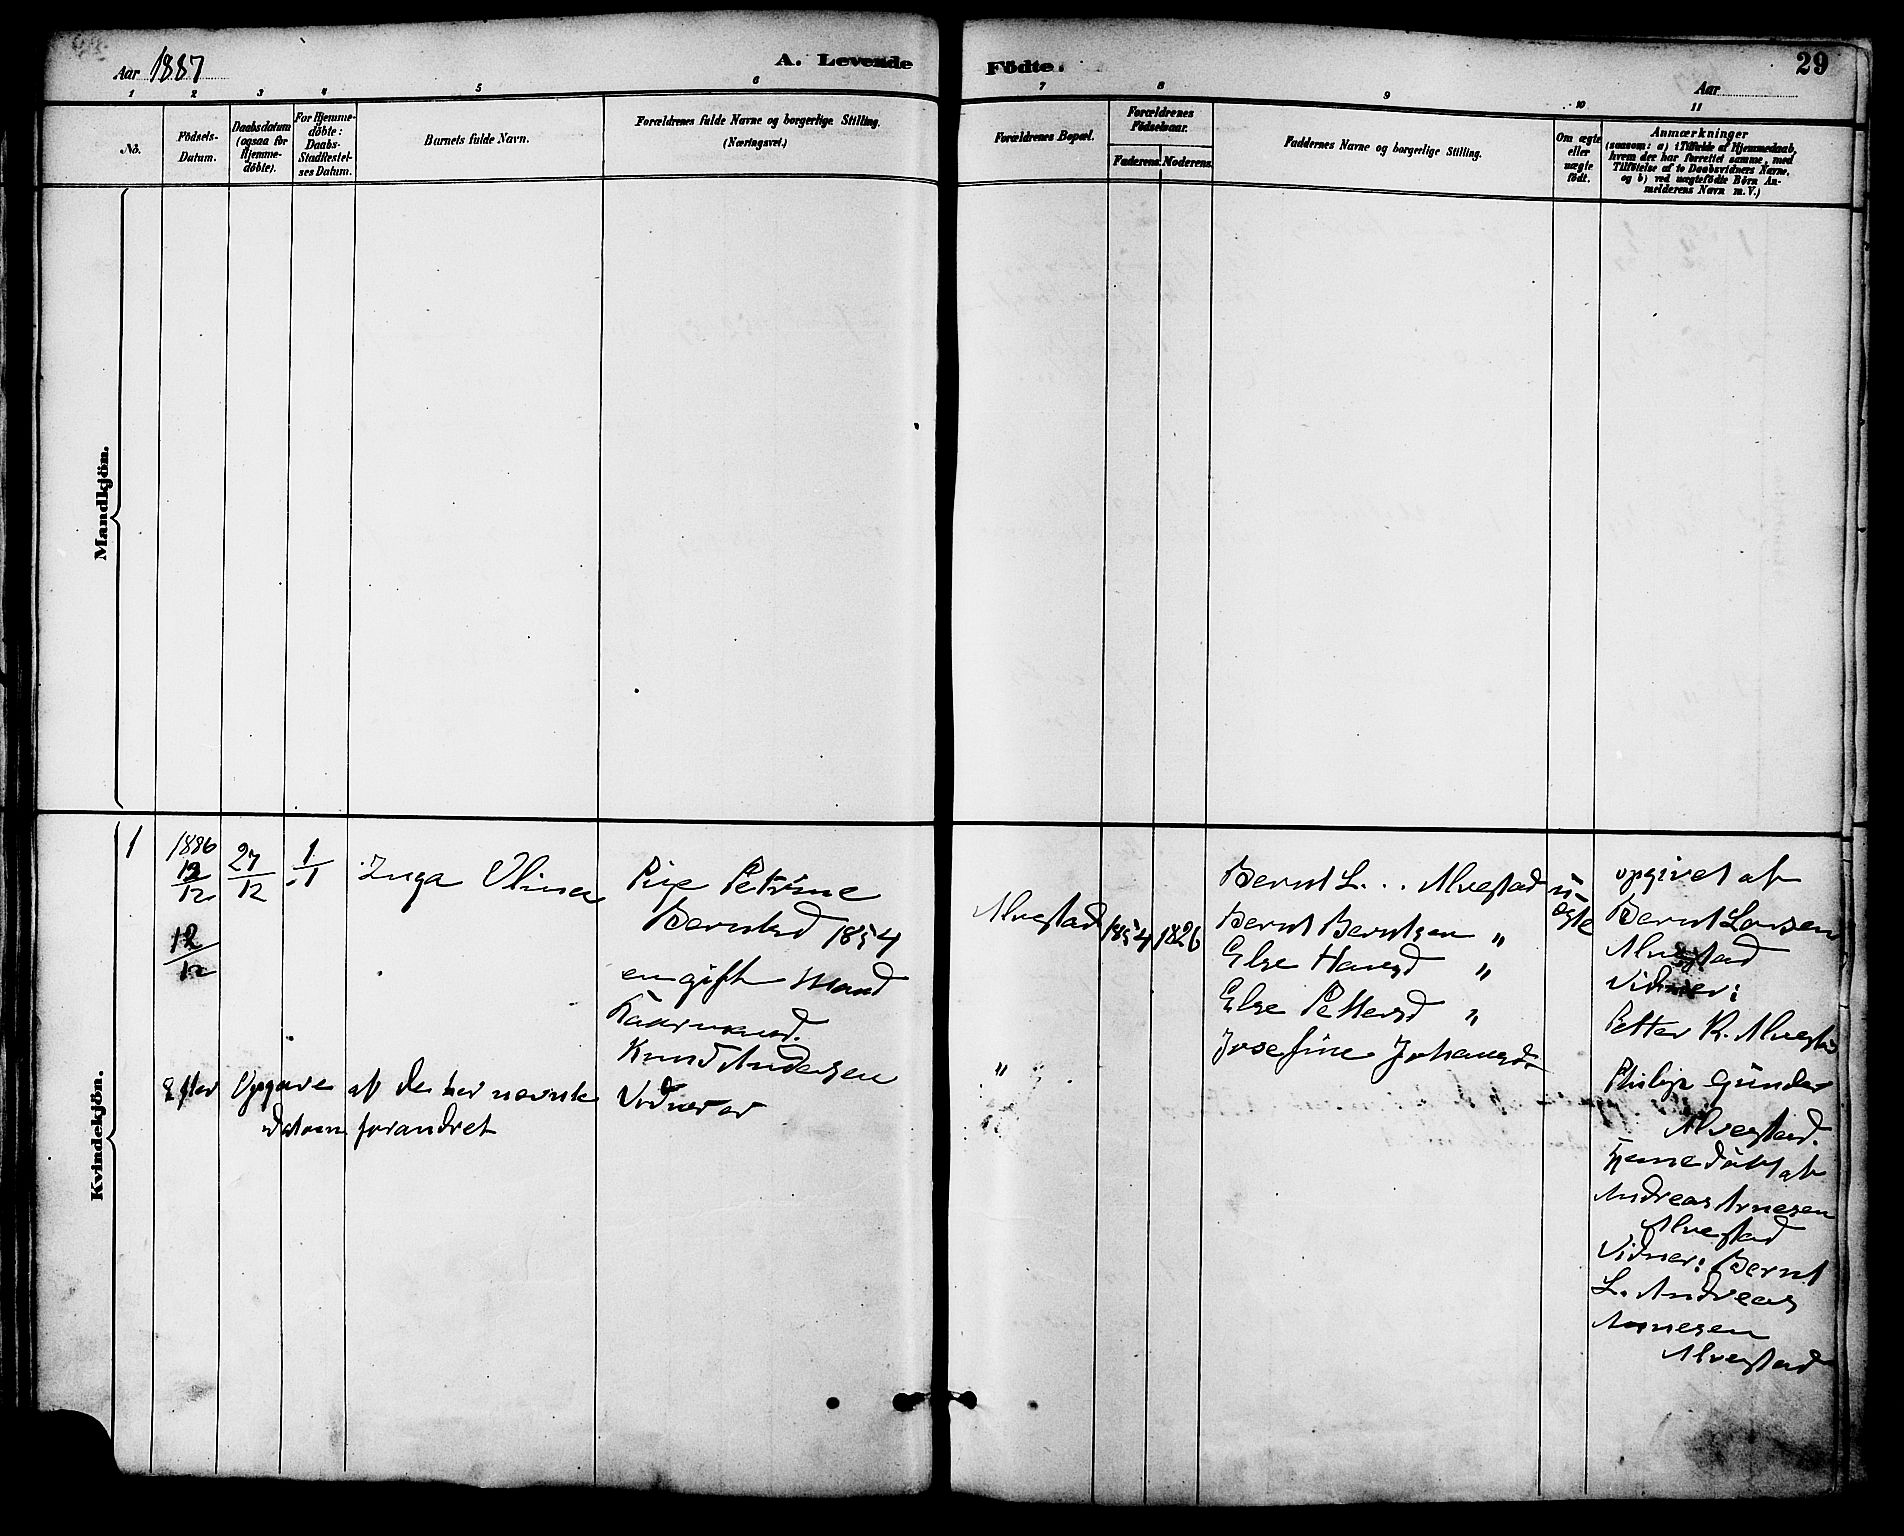 Aar 1887
A. Levende
Födte.
29
Aar
1 2 3 4 5 6 7 8 9 10 11
No.
Födsels-
Datum.
Daabsdatum
(ogsaa for
Hjemme-
döbte).
For Hjemme-
döbte:
Daabs-
Stadfestel-
ses Datum.
Barnets fulde Navn.
Forældrenes fulde Navne og borgerlige Stilling.
(Næringsvei.)
Forældrenes Bopæl.
Forældrenes
Födselsaar.
Faderens. Moderens.
Faddernes Navne og borgerlige Stilling.
Om ægte
eller
uægte
födt.
Anmærkninger
(saasom: a) i Tilfælde af Hjemmedaab,
hvem der har forrettet samme, med
Tilföielse af to Daabsvidners Navne,
og b) ved uægtefödte Börn An-
melderens Navn m. V.)
Mandkjön.
Kvindekjön.
1
1886
12
12
12
12
27
12
1
1
Inga Olina
Pige Petrine
Berntsd 1854
en gift Mand
Knud Andersen
Efter Opgave af de her nævnte Vidner er
datoen forandret
Alvestad
"
1854
1826
Bernt L... Alvestad
Bernt Berntsen "
Else Hansd "
Else Pettersd "
Josefine Johansd
u-
ægte
opgivet af
Bernt Larsen
Alvestad
Vidner:
Petter K. Alvestad
Philip Gunder
Alvestad.
Hjemedöbt af
Andreas Arnesen
Alvestad
Vidner: Bernt
L. Andreas
Arnesen
Alvestad